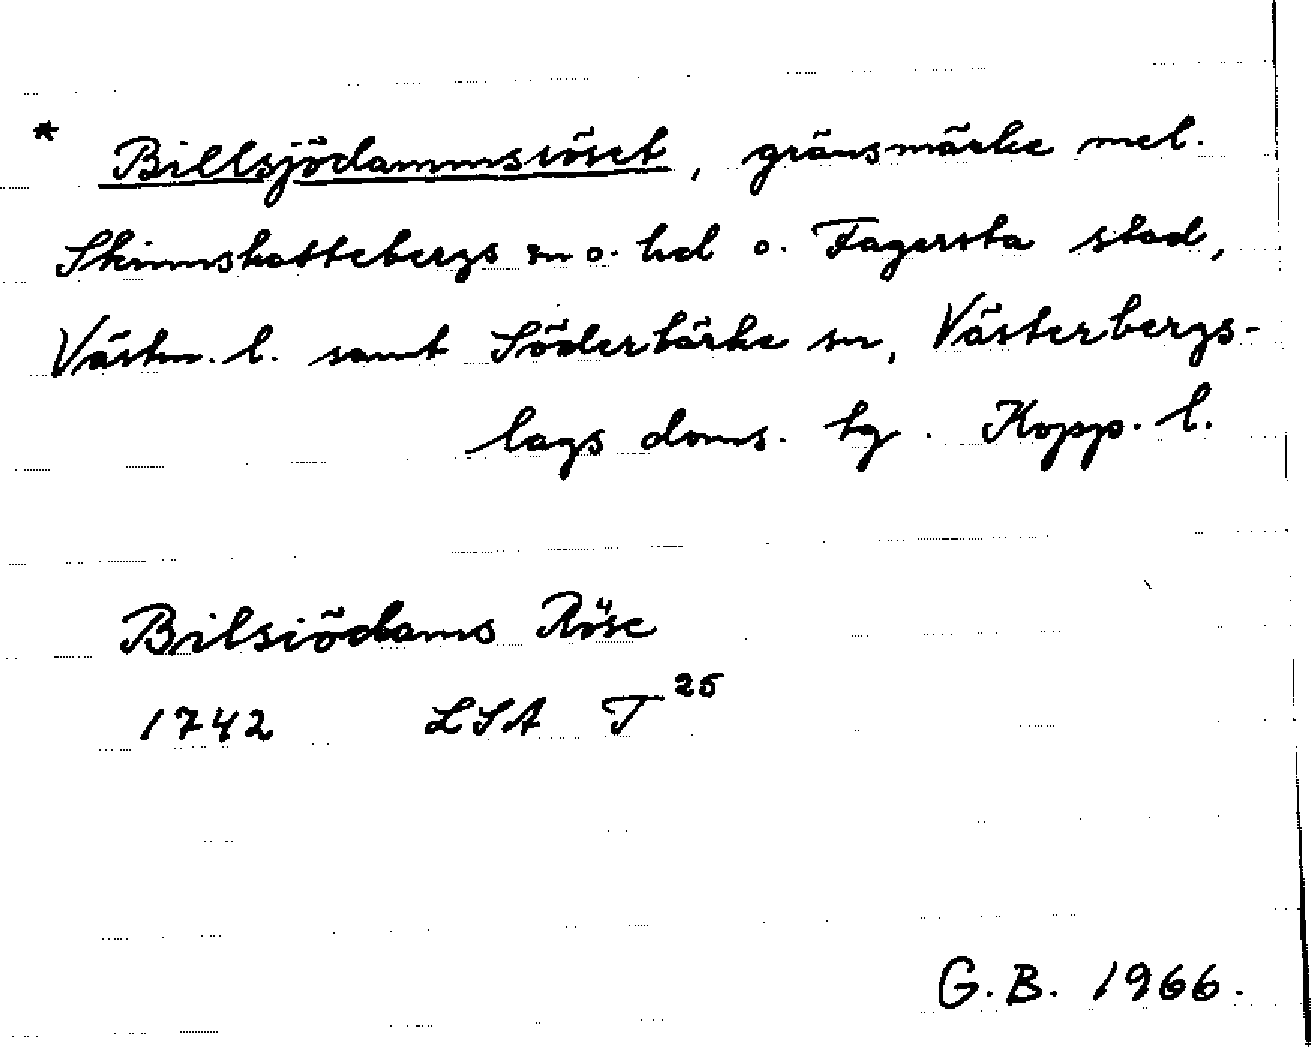 * Billsjödammsröset, gränsmärke mel.
Skinnskattebergs sn o. hd o. Fagersta stad,
Västm. l. samt Söderbärke sn, Västerbergs-
lags doms. tg. Kopp. l.
Bilsiödams Röse
1742 LSA T²⁵
G.B. 1966.